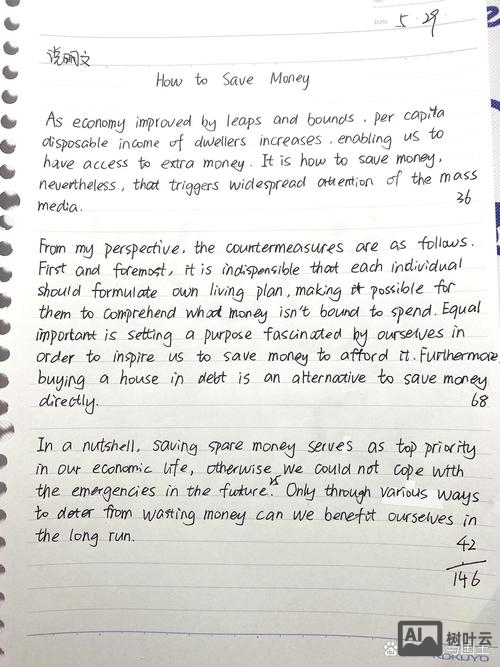 Date 5·29
说明文
How to Save Money
As economy improved by leaps and bounds, per capita
disposable income of dwellers increases, enabling us to
have access to extra money. It is how to save money,
nevertheless, that triggers widespread attention of the mass
media.
36
From my perspective, the countermeasures are as follows.
First and foremost, it is indispensible that each individual
should formulate own living plan, making it possible for
them to comprehend what money isn't bound to spend. Equal
important is setting a purpose fascinated by ourselves in
order to inspire us to save money to afford it. Furthermore,
buying a house in debt is an alternative to save money
directly.
68
In a nutshell, saving spare money serves as top priority
in our economic life, otherwise we could not cope with
the emergencies in the future. Only through various ways
to deter from wasting money can we benefit ourselves in
the long run.
42
146
AI 树叶云
KOKUYO